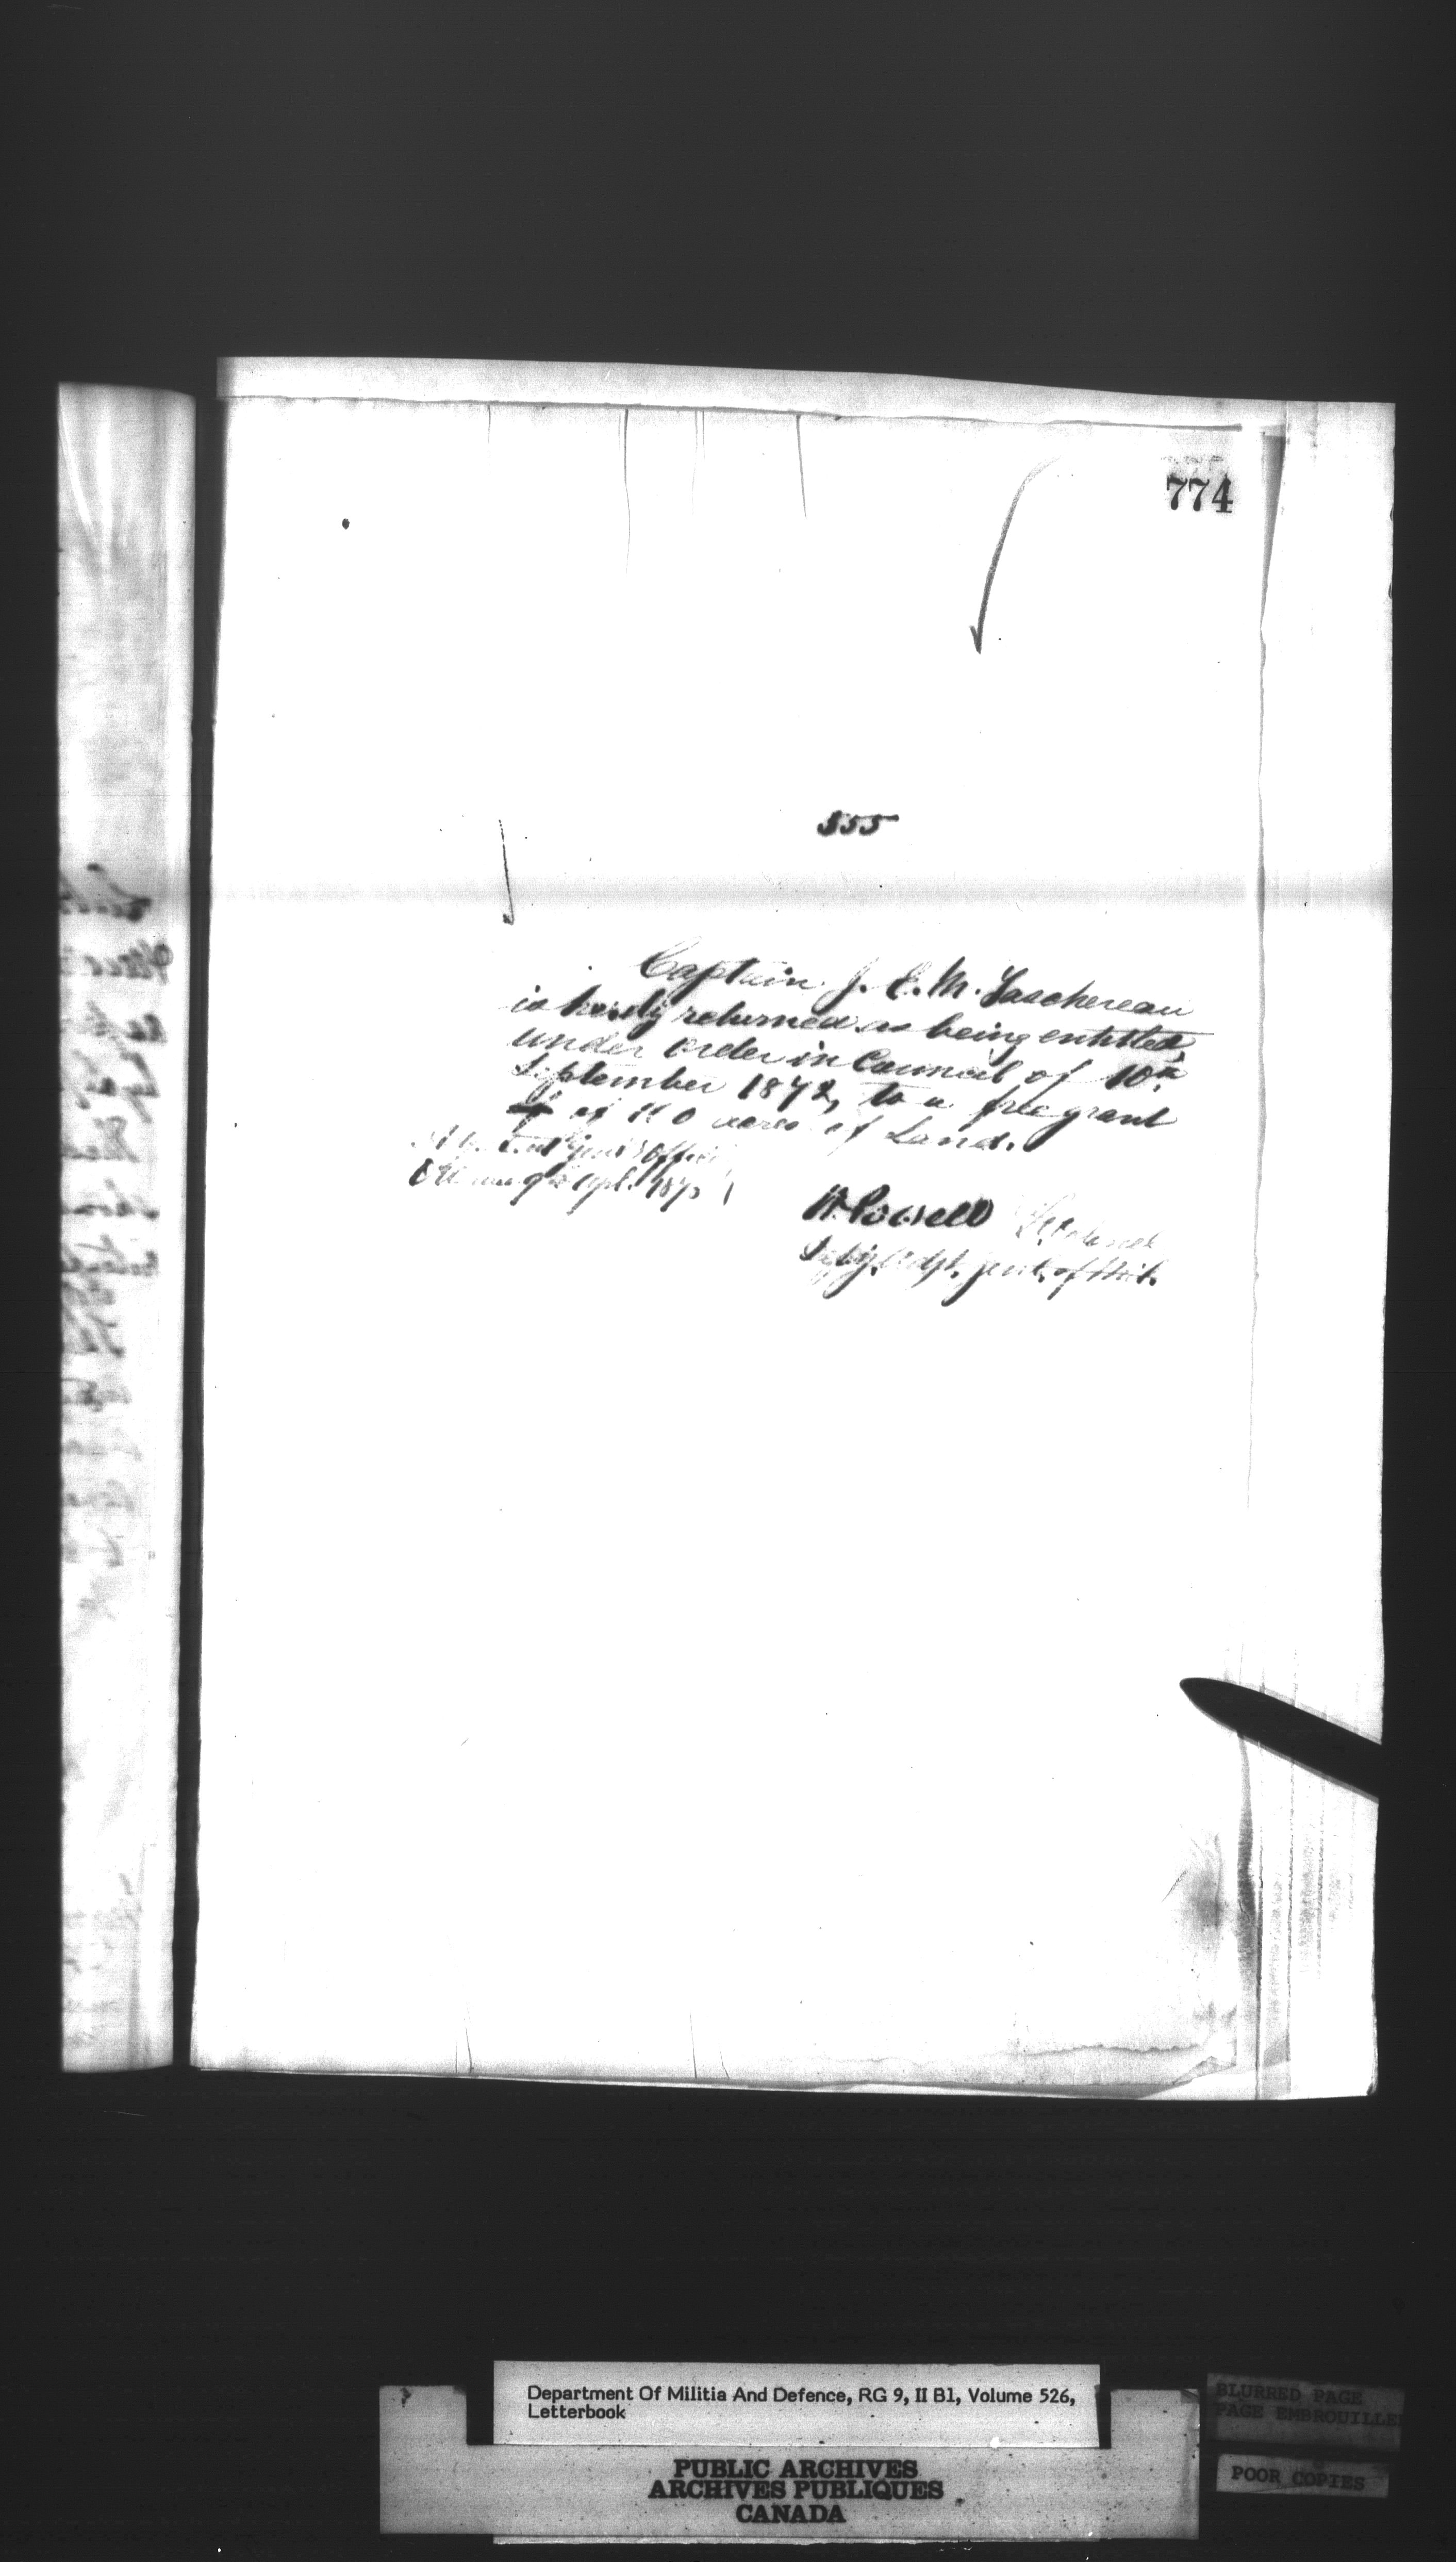 774
555
Captain J. E. M. Taschereau
is hereby returned as being entitled,
under Order in Council of 10th
September 1872, to a free grant
of acres of Land.
Office
Ottawa 9th Sept. 187
W Powell Lt Colonel
Depy. Adjt. Genl. of Mil.
Department Of Militia And Defence, RG 9, II B1, Volume 526,
Letterbook
PUBLIC ARCHIVES
ARCHIVES PUBLIQUES
CANADA
BLURRED PAGE
PAGE EMBROUILLE
POOR COPIES